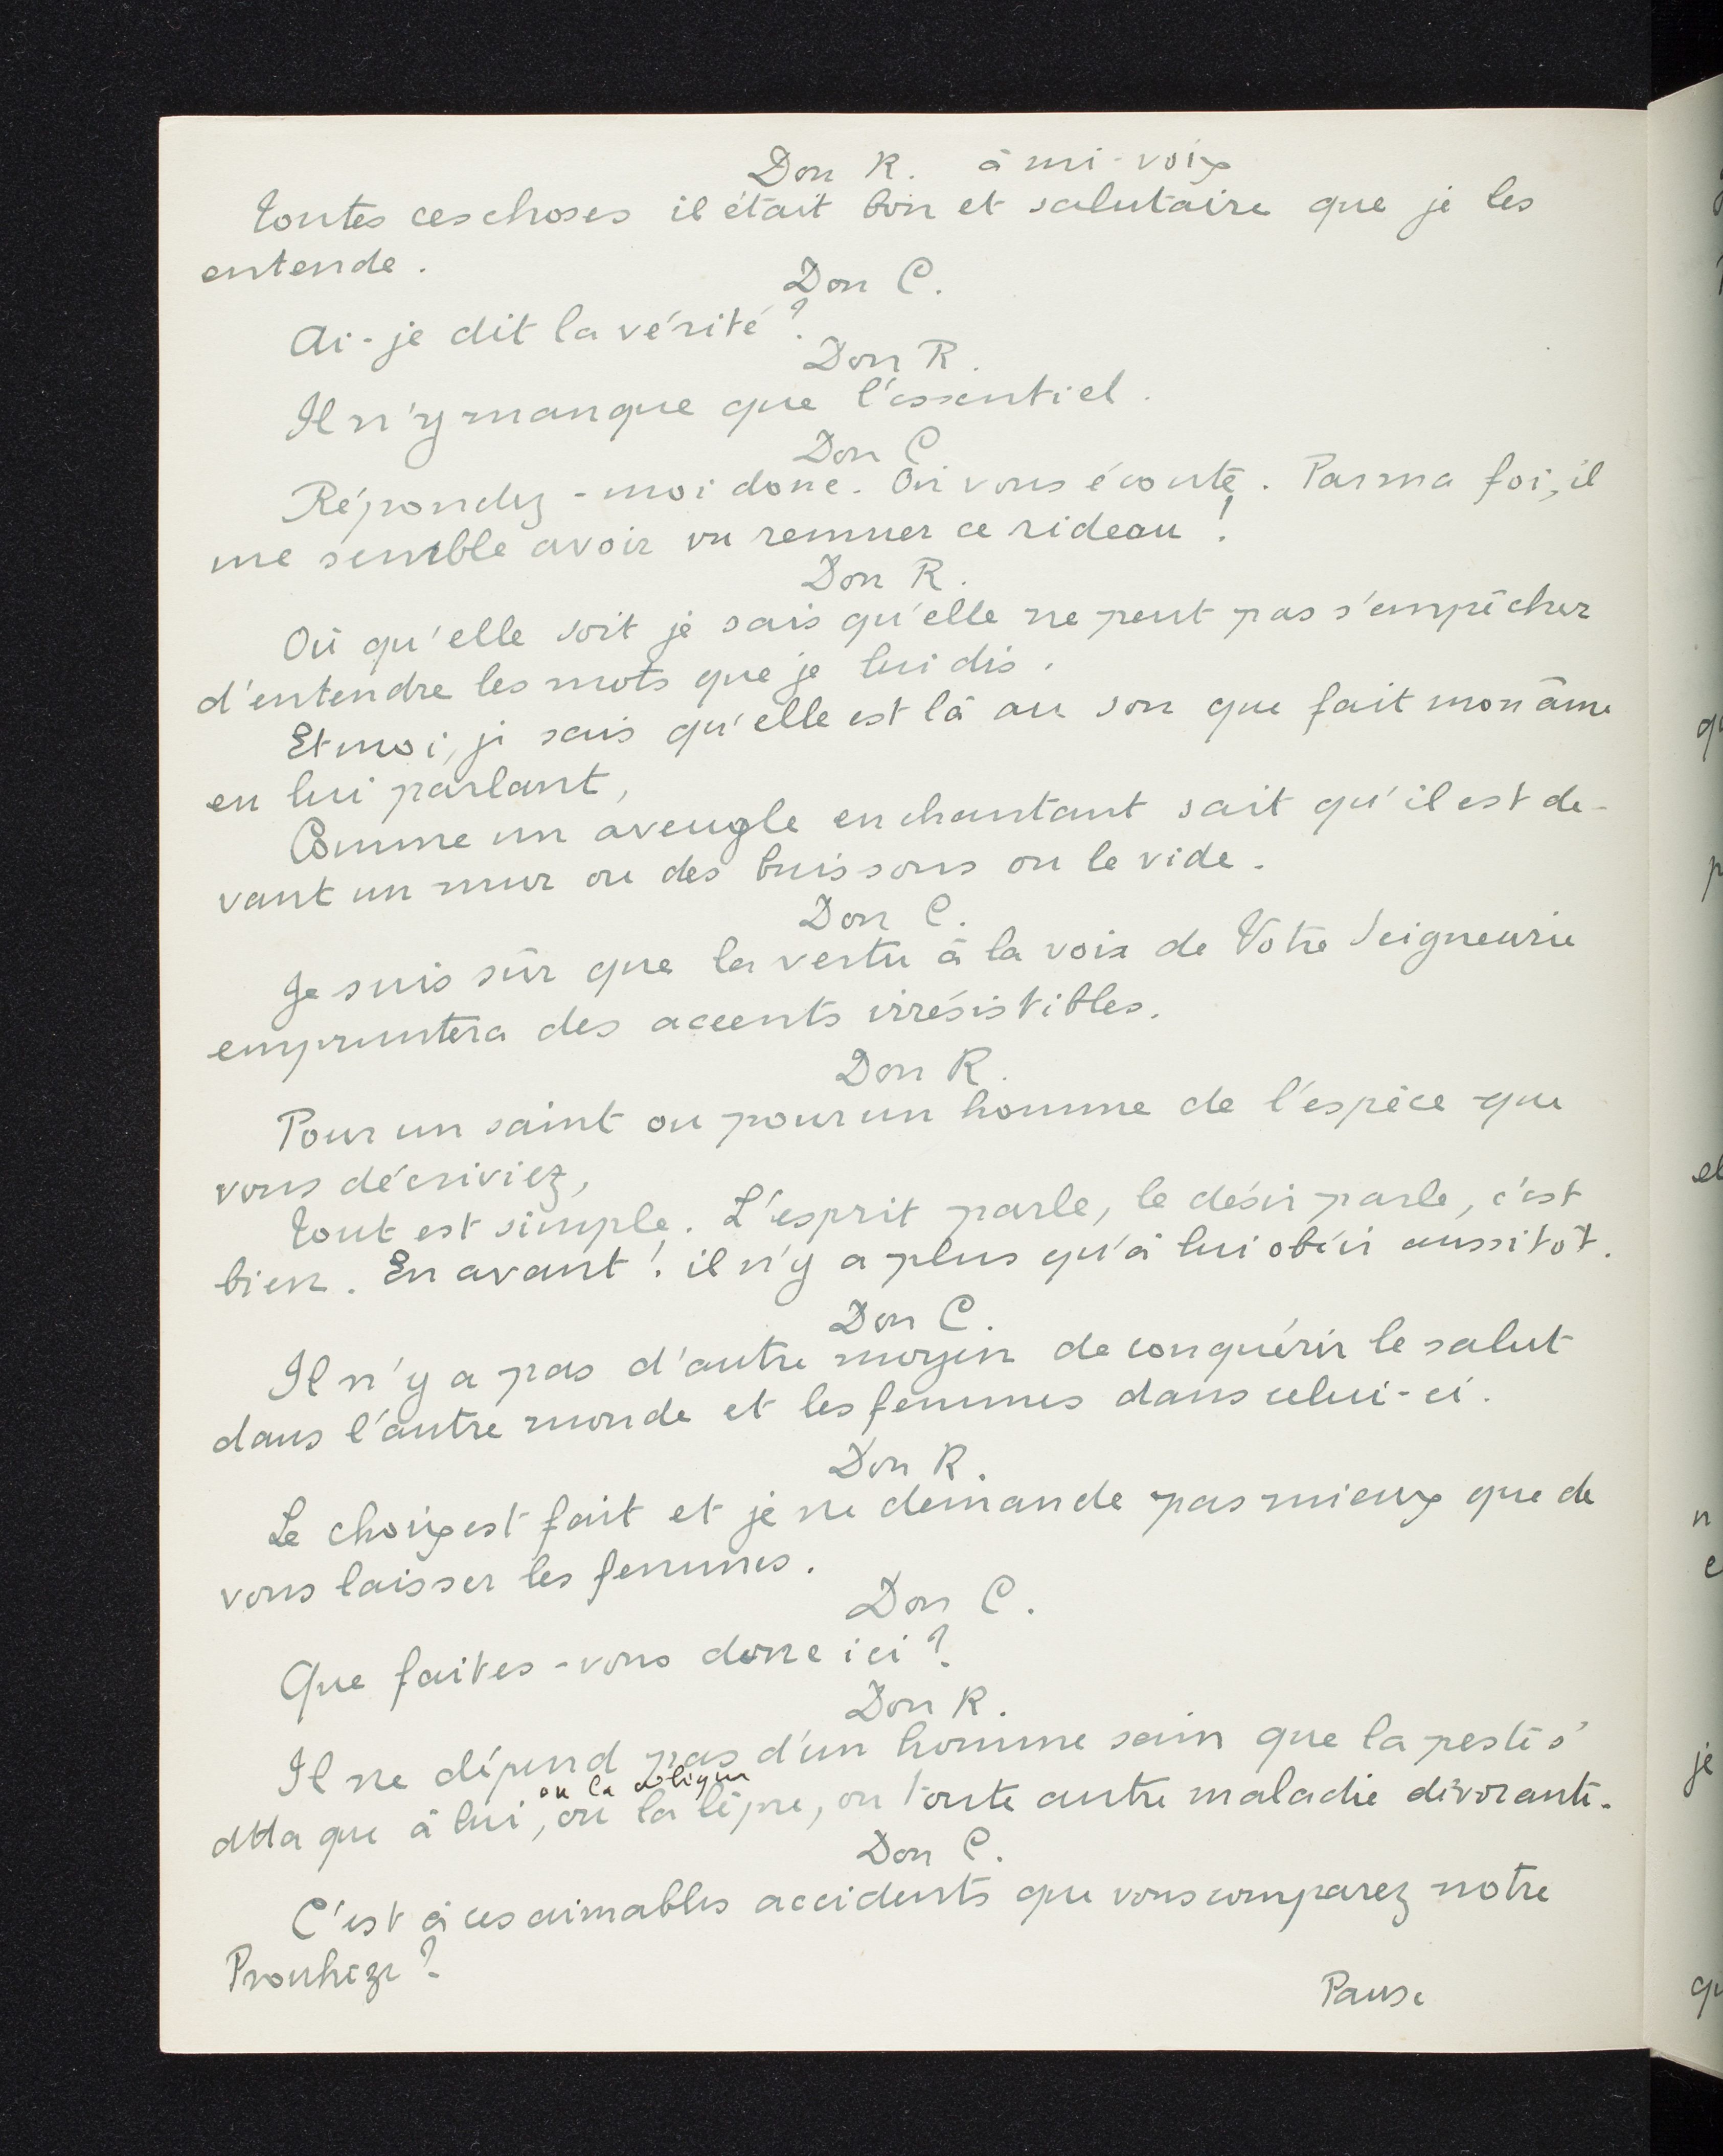 Don R. à mi-voix
Toutes ces choses il était bon et salutaire que je les
entende.
Don C.
Ai-je dit la vérité ?
Don R.
Il n'y manque que l'essentiel.
Don C
Répondez-moi donc. On vous écoute. Par ma foi, il
me semble avoir vu remuer ce rideau !
Don R.
Où qu'elle soit je sais qu'elle ne peut pas s'empêcher
d'entendre les mots que je lui dis.
Et moi, je sais qu'elle est là au son que fait mon âme
en lui parlant,
Comme un aveugle en chantant sait qu'il est de-
vant un mur ou des buissons ou le vide.
Don C.
Je suis sûr que la vertu à la voix de Votre Seigneurie
empruntera des accents irrésistibles.
Don R.
Pour un saint ou pour un homme de l'espèce que
vous décriviez,
Tout est simple. L'esprit parle, le désir parle, c'est
bien. En avant ! il n'y a plus qu'à lui obéir aussitôt.
Don C.
Il n'y a pas d'autre moyen de conquérir le salut
dans l'autre monde et les femmes dans celui-ci.
Don R.
Le choix est fait et je ne demande pas mieux que de
vous laisser les femmes.
Don C.
Que faites-vous donc ici ?
Don R.
Il ne dépend pas d'un homme sain que la peste s'
ou la colique
attaque à lui, ou la lèpre, ou toute autre maladie dévorante.
Don C.
C'est à ces aimables accidents que vous comparez notre
Prouhèze ?
Pause